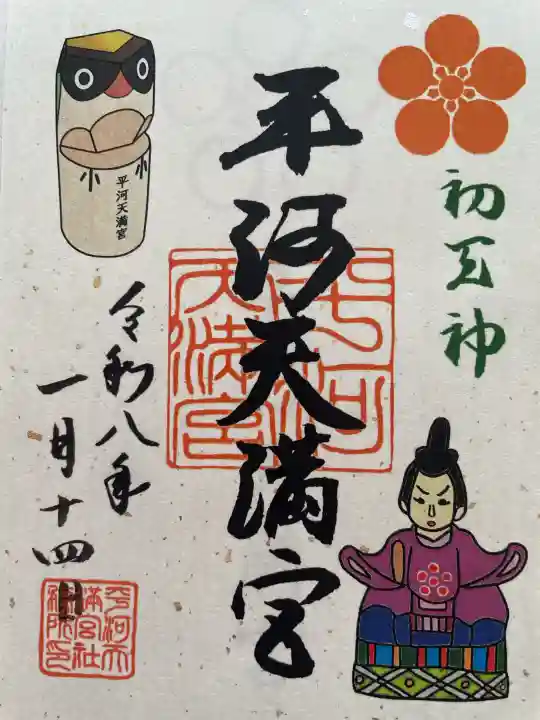 初天神
平河天満宮
平河天満宮
平河天満宮
令和八年
一月十四日
平河天満宮社務所印